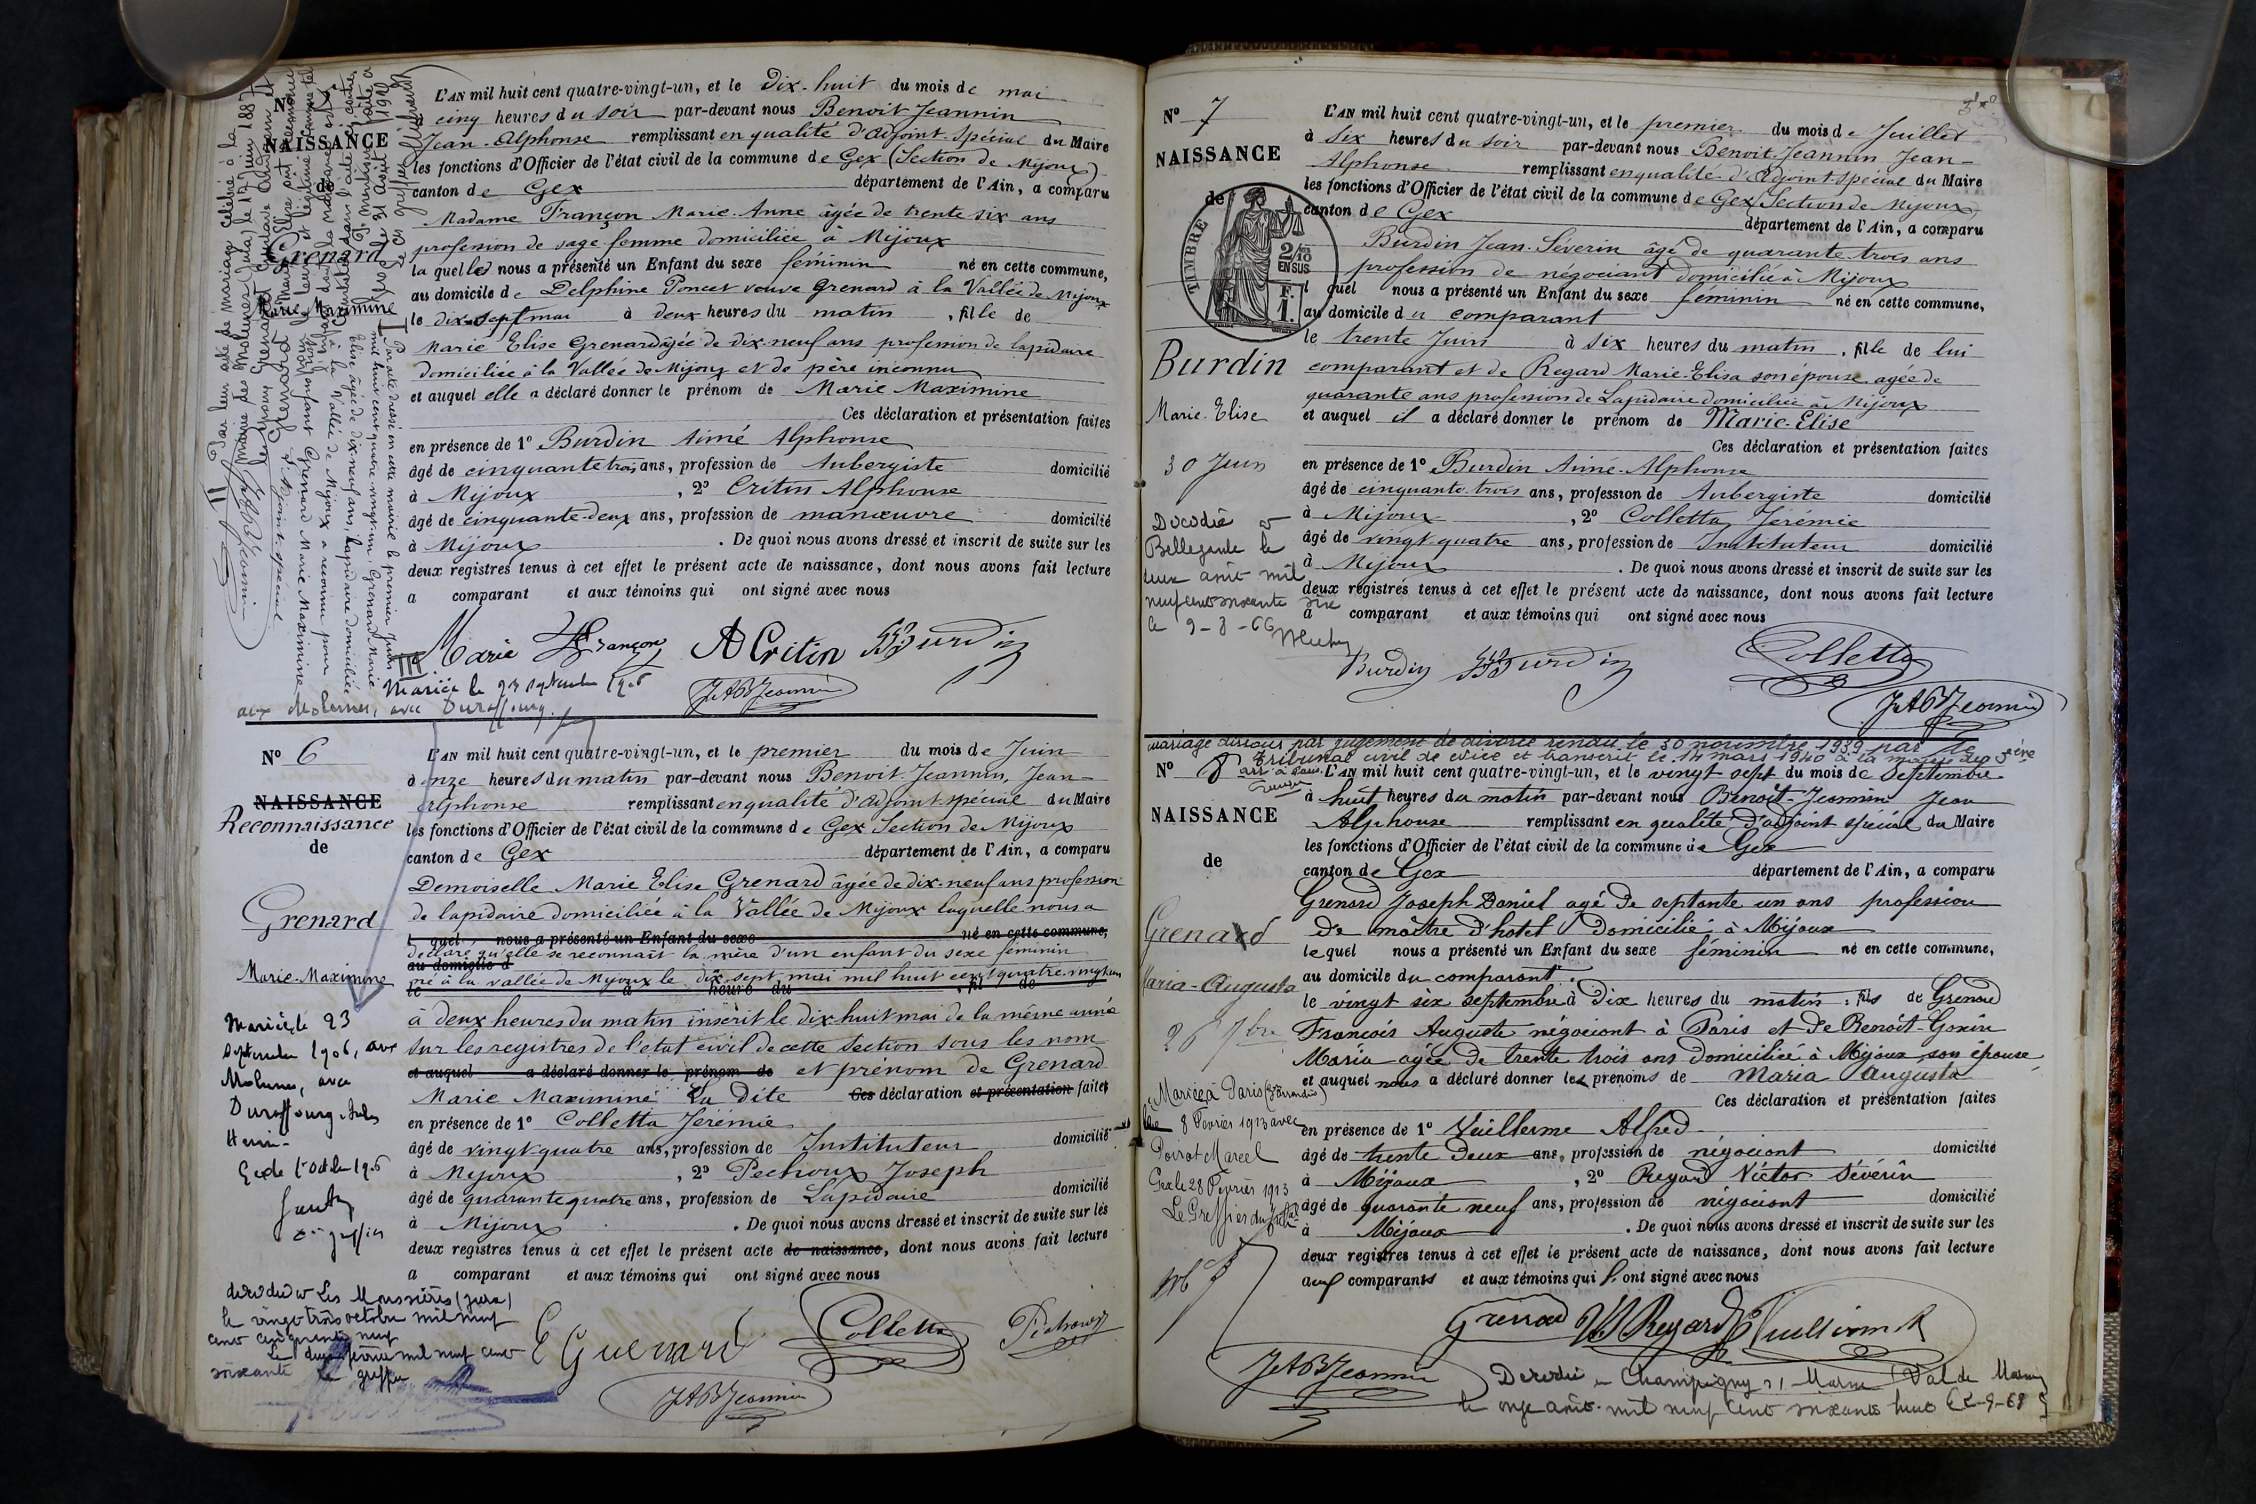 N°
NAISSANCE
de
Grenard
Marie Maximine
L'AN mil huit cent quatre-vingt-un, et le Dix-huit du mois de mai
à cinq heures du soir par-devant nous Benoit-Jeannin
Jean-Alphonse remplissant en qualité d'adjoint-spécial du Maire
les fonctions d'Officier de l'état civil de la commune de Gex (Section de Mijoux)
canton de Gex département de l'Ain, a comparu
Madame Françon Marie-Anne âgée de trente six ans
profession de sage femme domiciliée à Mijoux
laquelle nous a présenté un Enfant du sexe féminin né en cette commune,
au domicile de Delphine Poncet veuve Grenard à la Vallée de Mijoux
le dix-sept mai à deux heures du matin, fille de
Marie Elise Grenard âgée de dix-neuf ans profession de lapidaire
domiciliée à la Vallée de Mijoux et de père inconnu
et auquel elle a déclaré donner le prénom de Marie Maximine
Ces déclaration et présentation faites
en présence de 1° Burdin Aimé Alphonse
âgé de cinquante trois ans, profession de Aubergiste domicilié
à Mijoux, 2° Critin Alphonse
âgé de cinquante-deux ans, profession de manœuvre domicilié
à Mijoux. De quoi nous avons dressé et inscrit de suite sur les
deux registres tenus à cet effet le présent acte de naissance, dont nous avons fait lecture
a comparant et aux témoins qui ont signé avec nous
Marie Françon A Critin Burdin
JAB Jeannin
I Par acte dressé en cette mairie le premier Juin
mil huit cent quatre vingt-un, Grenard Marie
Elise âgée de dix-neuf ans, lapidaire domiciliée
à la Vallée de Mijoux a reconnu pour
son enfant Grenard Marie Maximine
II Par leur acte de mariage célébré à la
mairie des Molunes (Jura) le 17 Juin 1887
JAB Jeannin
III
Mariée le 23 septembre 1906
aux Molunes, avec Duraffourg
N° 6
NAISSANCE
Reconnaissance
de
Grenard
Marie-Maximine
Mariée le 23
septembre 1906, aux
Molunes, avec
Duraffourg Jules
Henri
Gex le 1er Octobre 1906
décédée à Les Moussières (Jura)
le vingt trois octobre mil neuf
cent cinquante neuf
L'AN mil huit cent quatre-vingt-un, et le premier du mois de Juin
à onze heures du matin par-devant nous Benoit-Jeannin, Jean-
Alphonse remplissant en qualité d'adjoint-spécial du Maire
les fonctions d'Officier de l'état civil de la commune de Gex Section de Mijoux
canton de Gex département de l'Ain, a comparu
Demoiselle Marie Elise Grenard âgée de dix-neuf ans profession
de lapidaire domiciliée à la Vallée de Mijoux laquelle nous a
l quel nous a présenté un Enfant du sexe né en cette commune,
déclaré qu'elle se reconnaît la mère d'un enfant du sexe féminin
au domicile d
né à la vallée de Mijoux le dix-sept mai mil huit cent quatre vingt un
le à heure du , fil de
à deux heures du matin inscrit le dix huit mai de la même année
sur les registres de l'état civil de cette Section sous les nom
et auquel a déclaré donner le prénom de et prénom de Grenard
Marie Maximine La dite Ces déclaration et présentation faites
en présence de 1° Colletta Jérémie
âgé de vingt quatre ans, profession de Instituteur domicilié
à Mijoux, 2° Pechoux Joseph
âgé de quarante quatre ans, profession de Lapidaire domicilié
à Mijoux. De quoi nous avons dressé et inscrit de suite sur les
deux registres tenus à cet effet le présent acte de naissance, dont nous avons fait lecture
a comparant et aux témoins qui ont signé avec nous
E Guenard Colletta Pechoux
JAB Jeannin
N° 7
NAISSANCE
de
TIMBRE
2/10
EN SUS
F.
1.
Burdin
Marie-Elise
30 Juin
Décédée à
Bellegarde le
deux août mil
neuf cent soixante six
le 9-8-66
L'AN mil huit cent quatre-vingt-un, et le premier du mois de Juillet
à Six heures du soir par-devant nous Benoit-Jeannin Jean-
Alphonse remplissant en qualité d'Adjoint-spécial du Maire
les fonctions d'Officier de l'état civil de la commune de Gex (Section de Mijoux)
canton de Gex département de l'Ain, a comparu
Burdin Jean-Séverin âgé de quarante trois ans
profession de négociant domicilié à Mijoux
lequel nous a présenté un Enfant du sexe féminin né en cette commune,
au domicile du comparant
le trente Juin à six heures du matin, fille de lui
comparant et de Regard Marie-Elisa son épouse, agée de
quarante ans profession de Lapidaire domiciliée à Mijoux
et auquel il a déclaré donner le prénom de Marie-Elise
Ces déclaration et présentation faites
en présence de 1° Burdin Aimé-Alphonse
âgé de cinquante-trois ans, profession de Aubergiste domicilié
à Mijoux, 2° Colletta Jérémie
âgé de vingt-quatre ans, profession de Instituteur domicilié
à Mijoux. De quoi nous avons dressé et inscrit de suite sur les
deux registres tenus à cet effet le présent acte de naissance, dont nous avons fait lecture
a comparant et aux témoins qui ont signé avec nous
Burdin Burdin Colletta
JAB Jeannin
mariage dissous par jugement de divorce rendu le 30 novembre 1939 par le
Tribunal civil de Seine et transcrit le 14 mars 1940 à la mairie du 3ème
arrt à Paris.
N° 8
NAISSANCE
de
Grenard
Maria-Augusta
26 7bre
Mariée à Paris
le 8 Février 1913 avec
Poirot Marcel
Gex le 28 Février 1913
Le Greffier du Tribal
L'AN mil huit cent quatre-vingt-un, et le vingt sept du mois de Septembre
à huit heures du matin par-devant nous Benoît-Jeannin Jean
Alphonse remplissant en qualité d'adjoint spécial du Maire
les fonctions d'Officier de l'état civil de la commune de Gex
canton de Gex département de l'Ain, a comparu
Grenard Joseph Daniel agé de septante un ans profession
de maître d'hotel Domicilié à Mijoux
lequel nous a présenté un Enfant du sexe féminin né en cette commune,
au domicile du comparant
le vingt six septembre à Dix heures du matin, fils de Grenard
François Auguste négociant à Paris et de Benoît-Gonin
Maria agée de trente trois ans domiciliée à Mijoux son épouse
et auquel nous a déclaré donner les prénoms de Maria Augusta
Ces déclaration et présentation faites
en présence de 1° Vuillerme Alfred
âgé de trente deux ans, profession de négociant domicilié
à Mijoux, 2° Regard Victor Sévérin
âgé de quarante neuf ans, profession de négociant domicilié
à Mijoux. De quoi nous avons dressé et inscrit de suite sur les
deux registres tenus à cet effet le présent acte de naissance, dont nous avons fait lecture
aux comparants et aux témoins qui l'ont signé avec nous
Grenard V S Regard
JAB Jeannin
Décédée à Champigny s/ Marne (Val de Marne)
le onze août mil neuf cent soixante huit